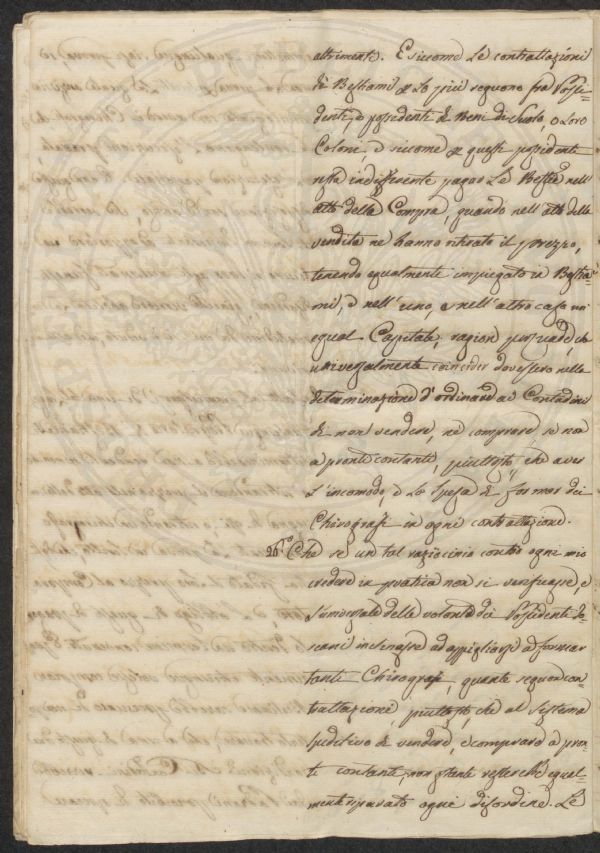 altrimenti. E siccome le contrattazioni
di Bestiami p lo più seguono fra Possi-
denti, e possidenti di Beni di Suolo, o loro
Coloni, e siccome p questi possidenti
resta indifferente pagar le Bestie nell'
atto della Compra, quando nell'atto della
vendita ne hanno ritirato il prezzo,
tenendo egualmente impiegato in Bestia-
mi, e nell'uno, e nell'altro caso un
egual Capitale; ragion persuade, che
universalmente coincider dovessero nella
determinazione d'ordinare ai Contadini
di non vendere, nè comprare, se non
a pronti contanti, piuttosto, che aver
l'incomodo, e la spesa di formar dei
Chirografi in ogni contrattazione.
26.º Che se un tal raziocinio contro ogni mio
credere in pratica non si verificasse, e
l'universale della volontà dei Possidenti To-
scani inclinasse ad appigliarsi a formar
tanti Chirografi, quante seguon con-
trattazioni, piuttosto, che al sistema
speditivo di vendere, e comprare a pron-
ti contanti, non ostante resterebbe egual-
mente riparato ogni disordine. Le